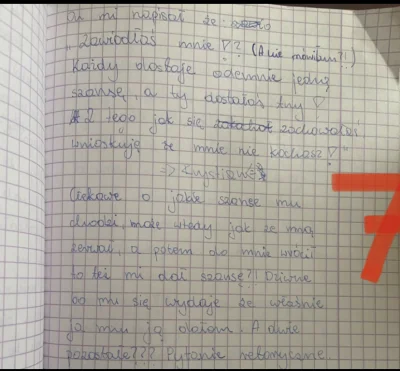 ak mi napisał że
"Zawiodłaś mnie!? (A nie mówiłam?!)
Każdy dostaje odemnie jedną
szansę, a ty dostałaś trzy!
Z tego jak się zachowałaś
wnioskuję że mnie nie kochasz!"
Ciekawe o jakie szanse mu
chodzi, może wtedy jak ze mną
zerwał, a potem do mnie wrócił
to też mi dał szansę?! Dziwne
bo mu się wydaje że właśnie
ja mu ją dałam. A dwie
pozostałe??? Pytanie retoryczne.
7